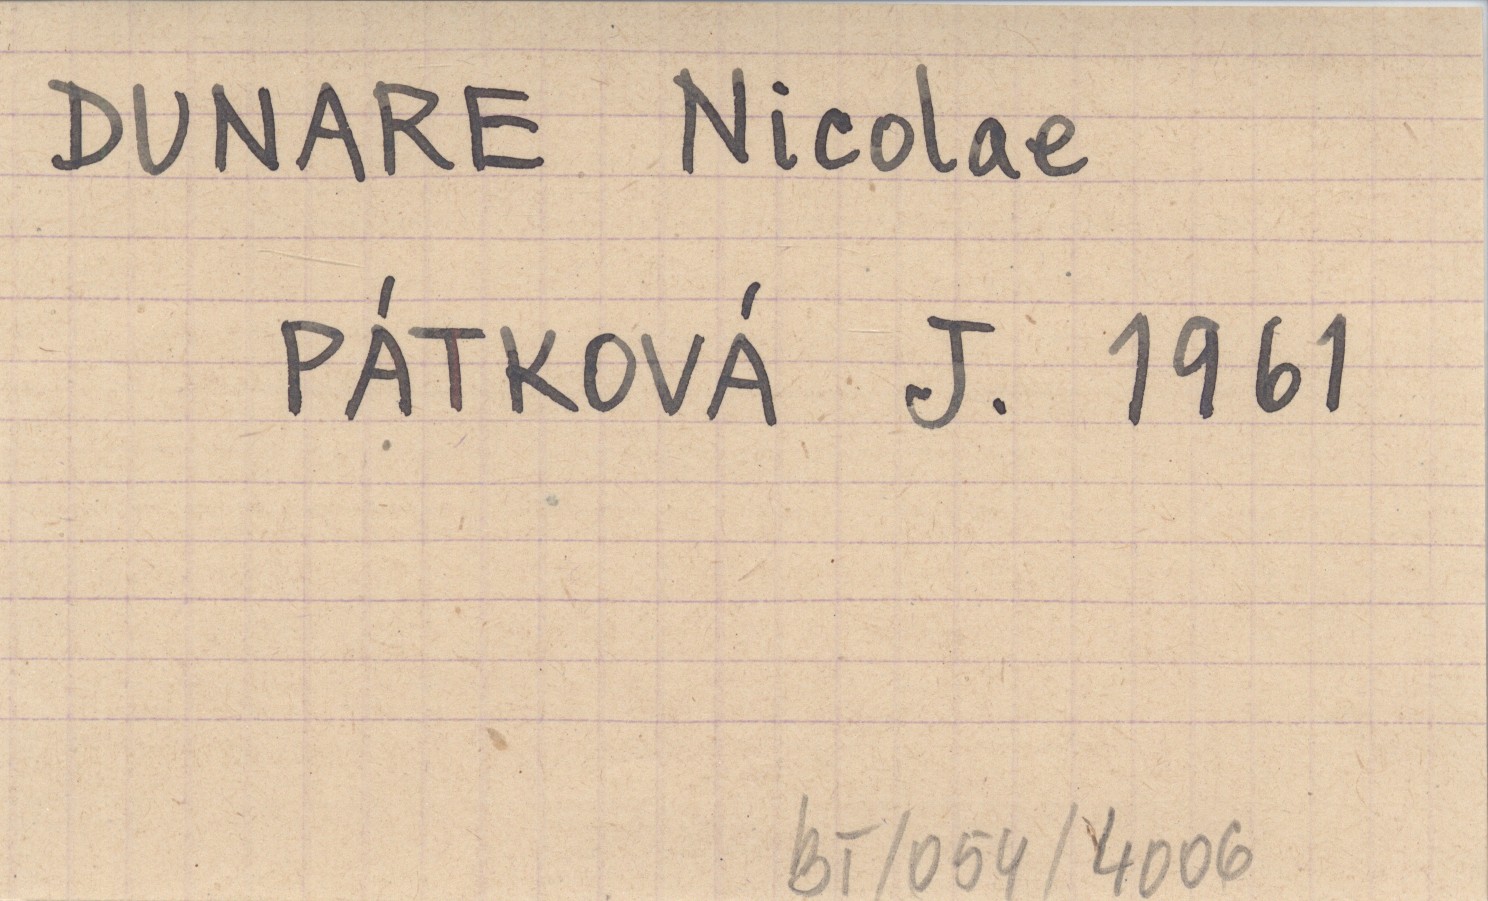 DUNARE Nicolae
PÁTKOVÁ J. 1961
BI/054/4006